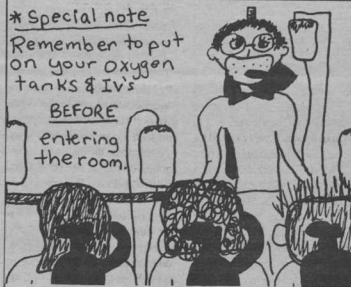 * Special note
Remember to put
on your oxygen
tanks & Iv's
BEFORE
entering
the room.